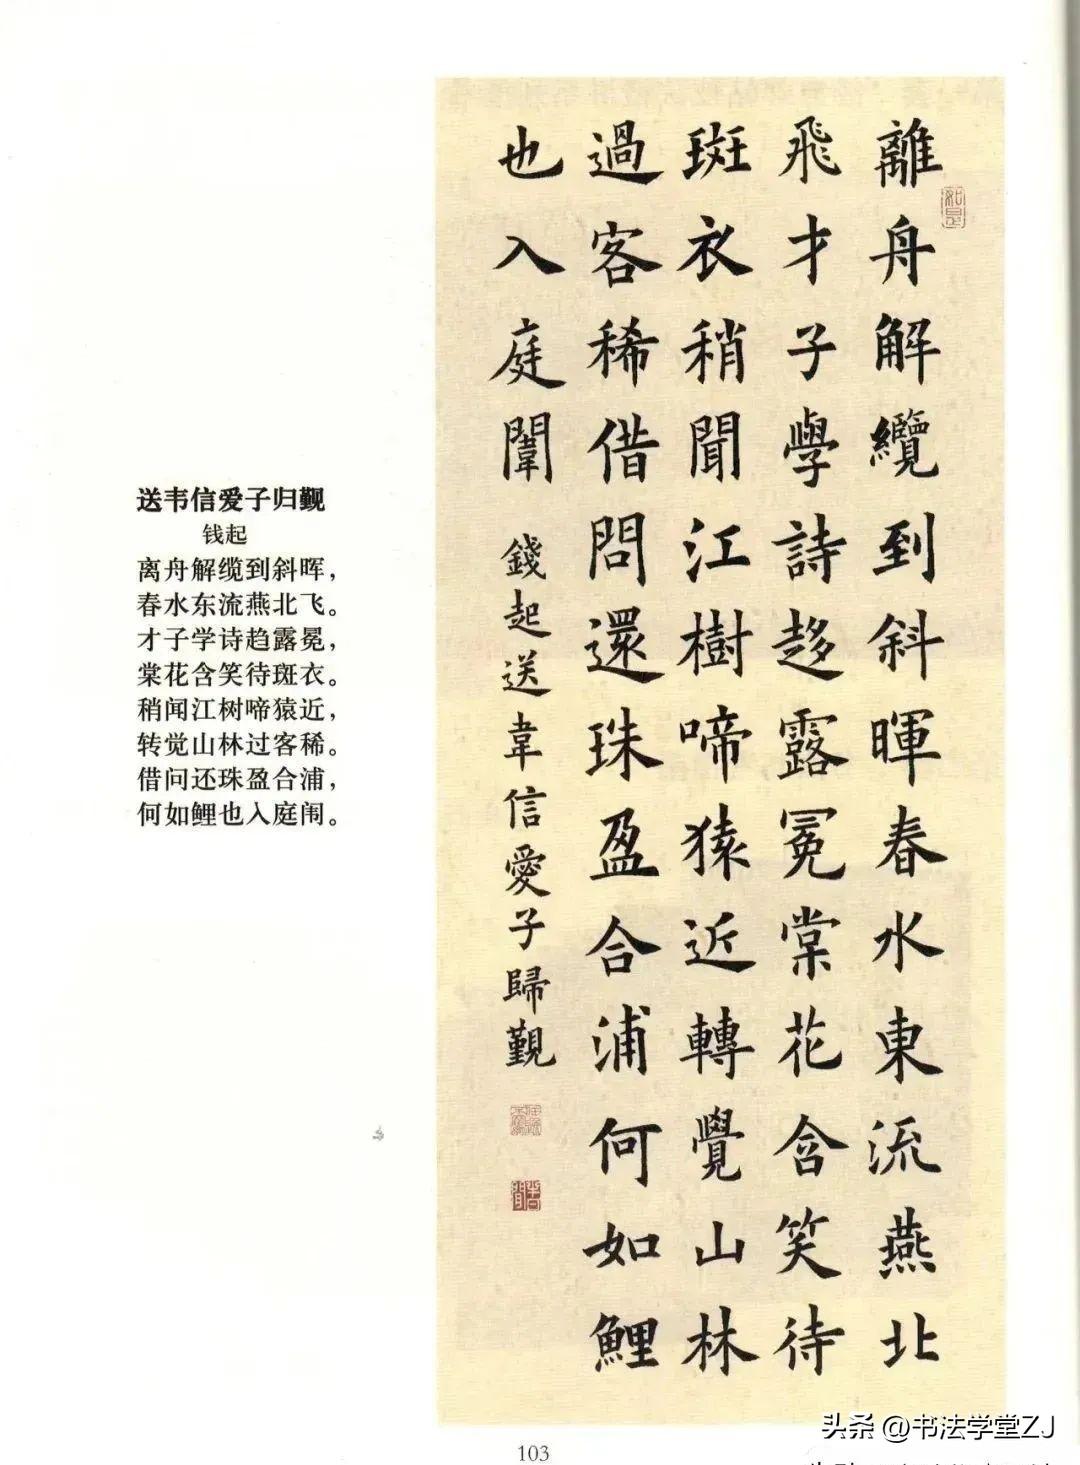 送韦信爱子归觐
钱起
离舟解缆到斜晖，
春水东流燕北飞。
才子学诗趋露冕，
棠花含笑待斑衣。
稍闻江树啼猿近，
转觉山林过客稀。
借问还珠盈合浦，
何如鲤也入庭闱。
離舟解纜到斜暉春水東流燕北
飛才子學詩趍露冕棠花含笑待
斑衣稍聞江樹啼猿近轉覺山林
過客稀借問還珠盈合浦何如鯉
也入庭闈
錢起送韋信愛子歸覲
103
头条 @书法学堂ZJ